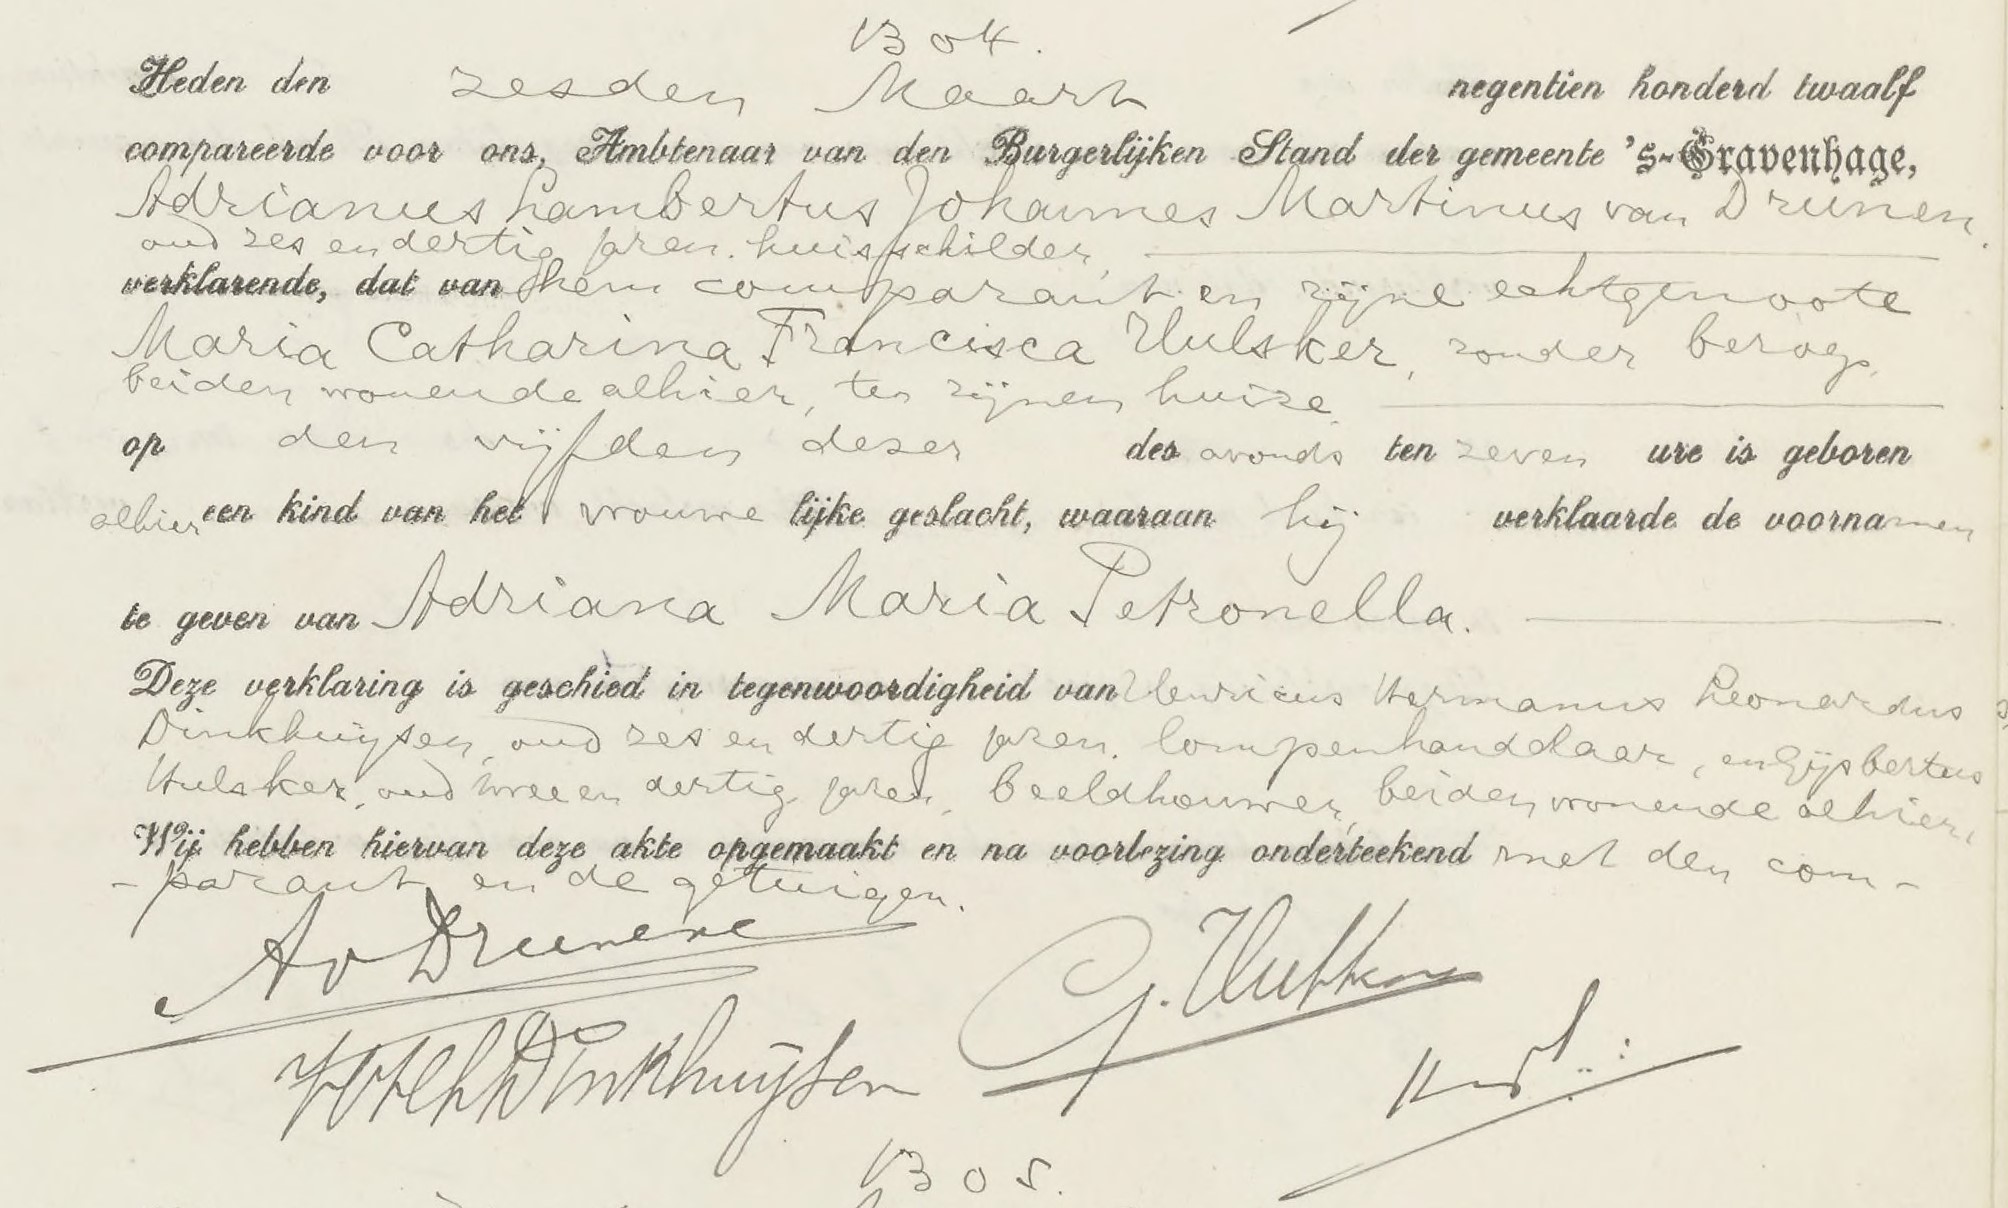 1304.
Heden den zesden Maart negentien honderd twaalf
compareerde voor ons, Ambtenaar van den Burgerlijken Stand der gemeente 's-Gravenhage,
Adrianus Lambertus Johannes Martinus van Drunen.
oud zes en dertig jaren. huisschilder,
verklarende, dat van hem comparant en zijne echtgenoote
Maria Catharina Francisca Hulsker, zonder beroep,
beiden wonende alhier, ten zijnen huize
op den vijfden dezer des avonds ten zeven ure is geboren
alhier een kind van het vrouwelijke geslacht, waaraan hij verklaarde de voornamen
te geven van Adriana Maria Petronella.
Deze verklaring is geschied in tegenwoordigheid van Henricus Hermanus Leonardus
Dinkhuijsen, oud zes en dertig jaren. lompenhandelaar, en Gijsbertus
Hulsker, oud twee en dertig jaren, beeldhouwer, beiden wonende alhier.
Wij hebben hiervan deze akte opgemaakt en na voorlezing onderteekend met den com-
-parant en de getuigen.
A v Drunen
G. Hulsker
HHL Dinkhuijsen
1305.